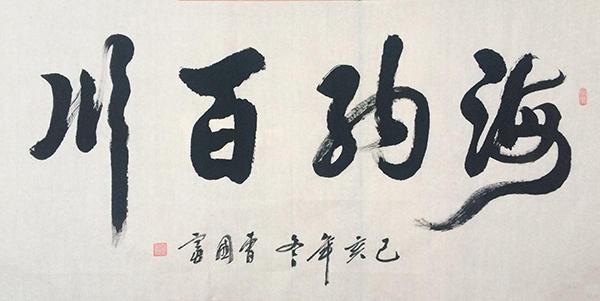 海納百川
己亥年冬 國